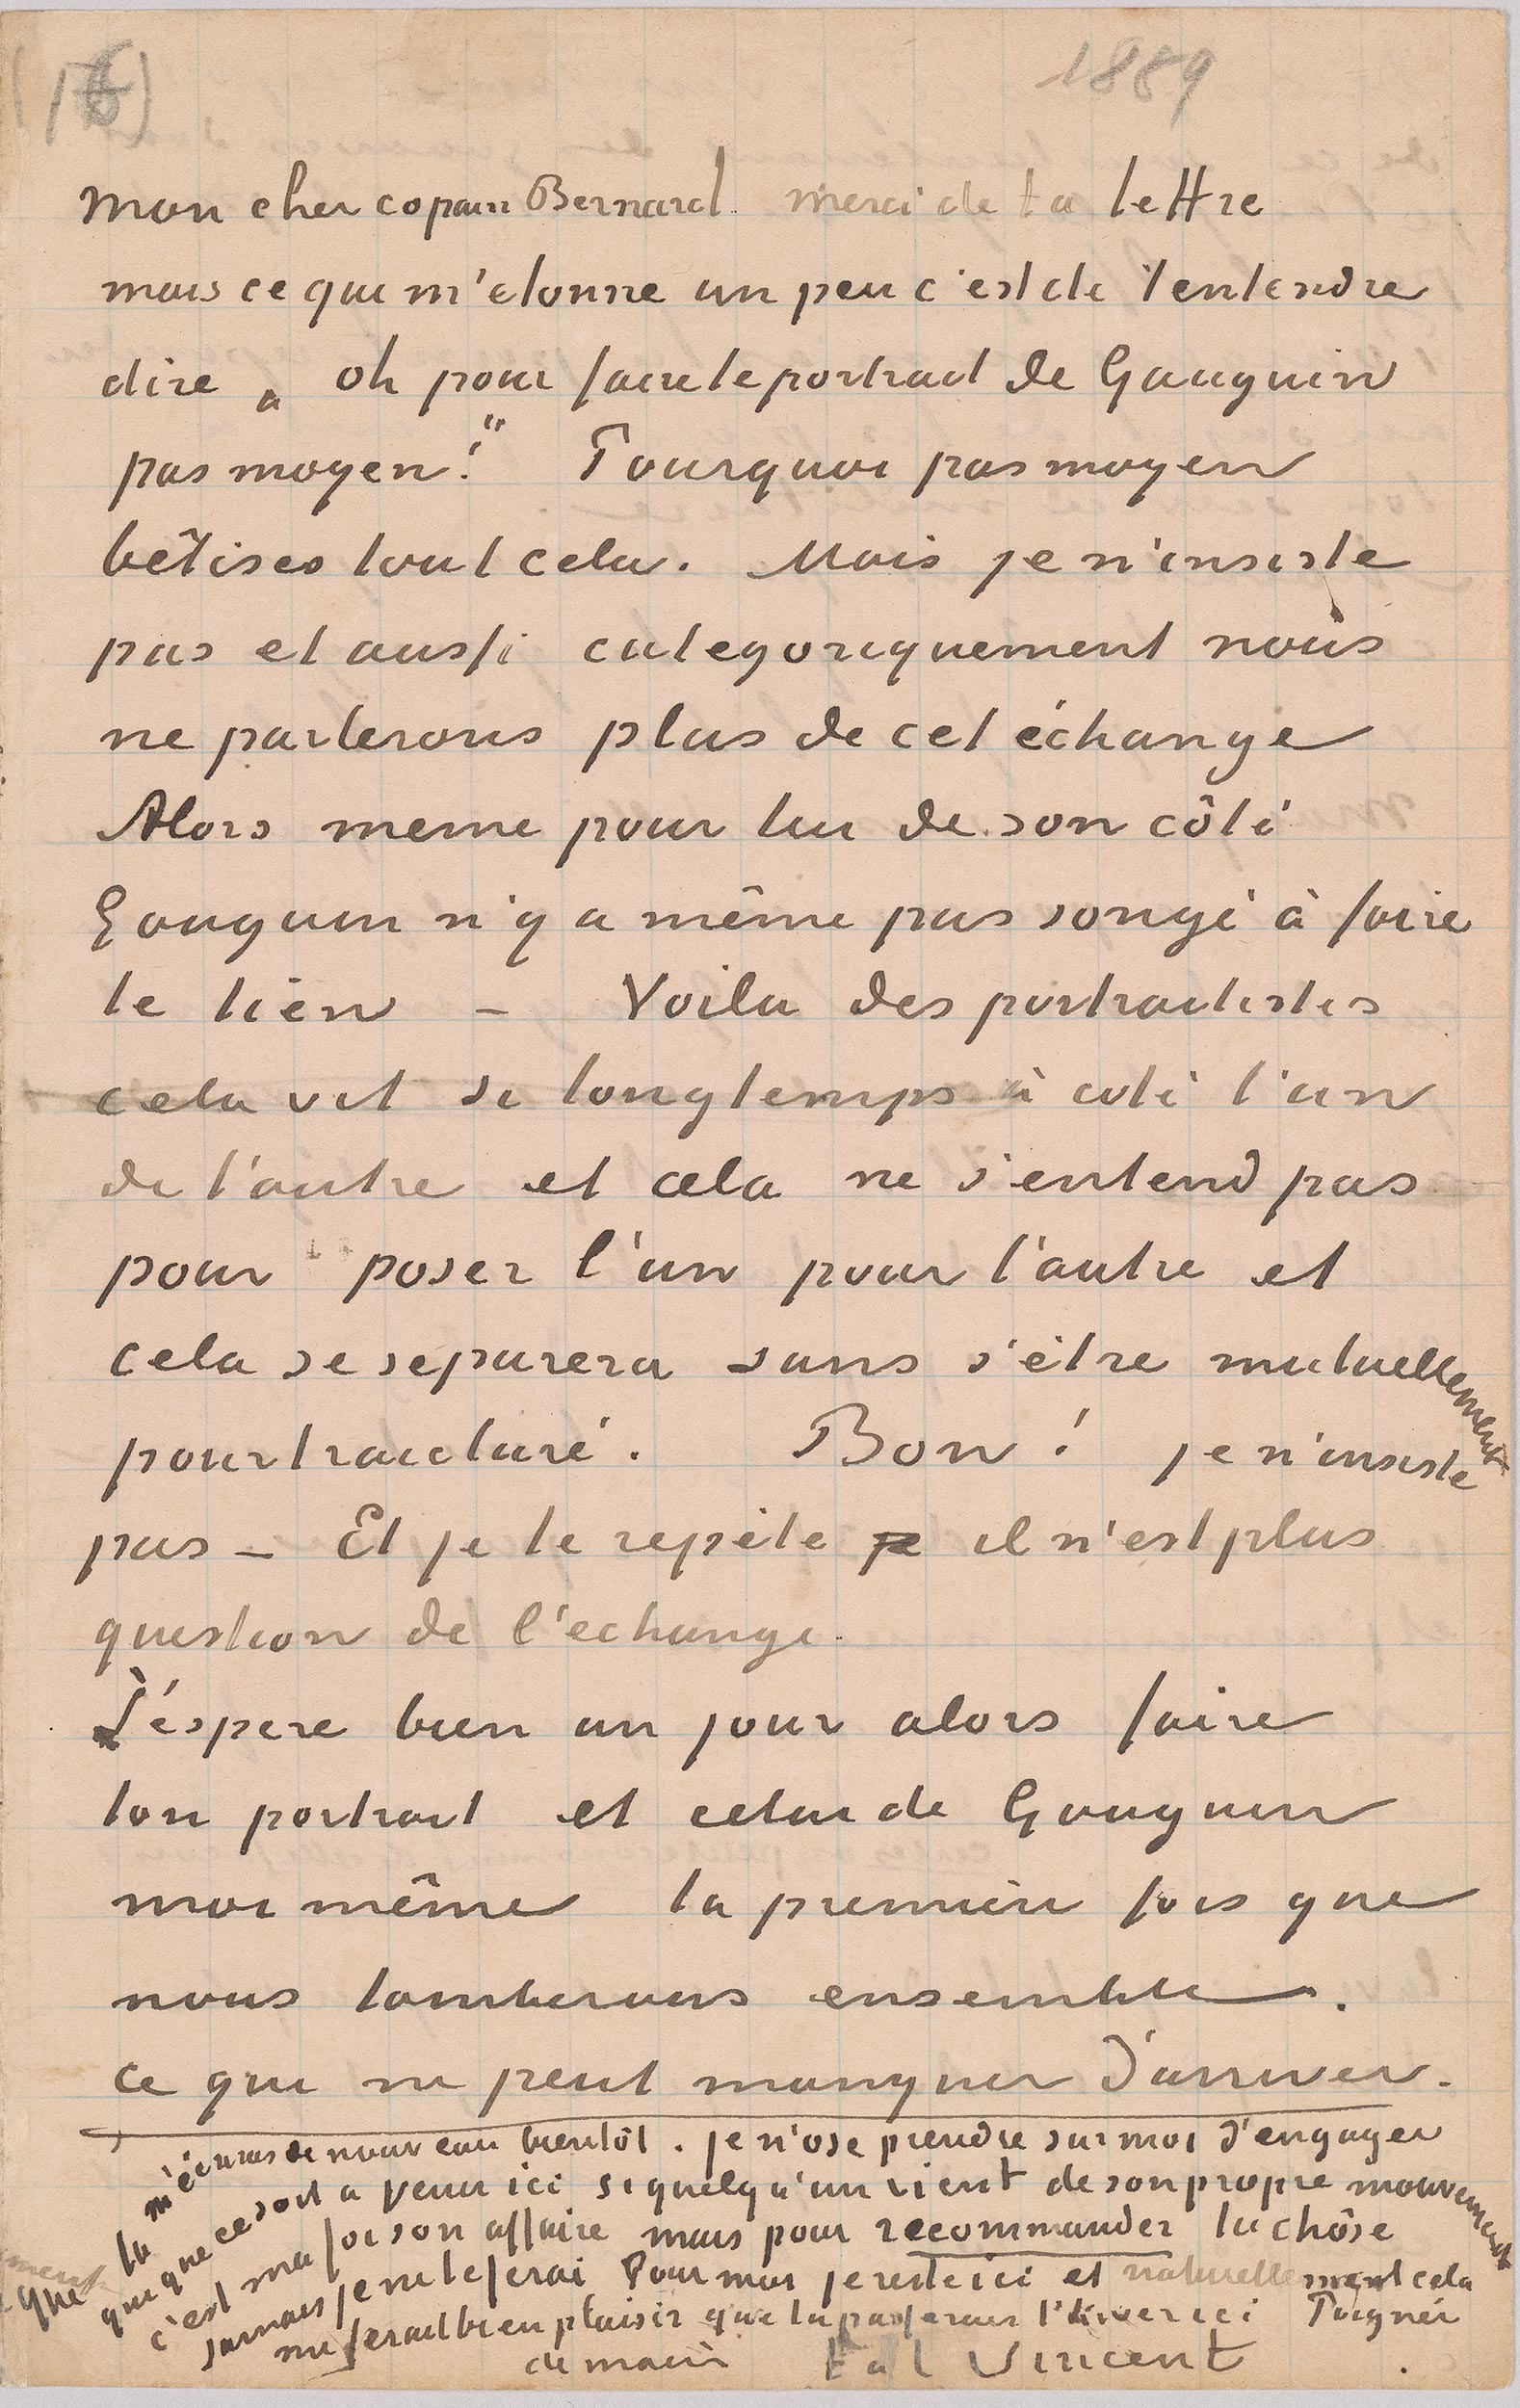 (16)
1889
mon cher copain Bernard. merci de ta lettre
mais ce qui m'etonne un peu c'est de t'entendre
dire „ oh pour faire le portrait de Gauguin
pas moyen!" Pourquoi pas moyen
bêtises tout cela. Mais je n'insiste
pas et aussi categoriquement nous
ne parlerons plus de cet échange
Alors meme pour lui de son côté
Gauguin n'y a même pas songé à faire
le tien – Voila des portraitistes
cela vit si longtemps à coté l'un
de l'autre et cela ne s'entend pas
pour poser l'un pour l'autre et
cela se separera sans s'être mutuellement
pourtraicturé. Bon! je n'insiste
pas – Et je te repète je il n'est plus
question de l'echange.
J'éspere bien un jour alors faire
ton portrait et celui de Gauguin
moi même la première fois que
nous tomberons ensemble.
ce qui ne peut manquer d'arriver.
tu m'écriras de nouveau bientôt. je n'ose prendre sur moi d'engager
qui que ce soit a venir ici si quelqu'un vient de son propre mouvement
c'est ma foi son affaire mais pour recommander la chôse
jamais je ne le ferai Pour moi je reste ici et naturellement cela
me ferait bien plaisir que tu passerais l'hiver ici Poignée
de main t. à t Vincent